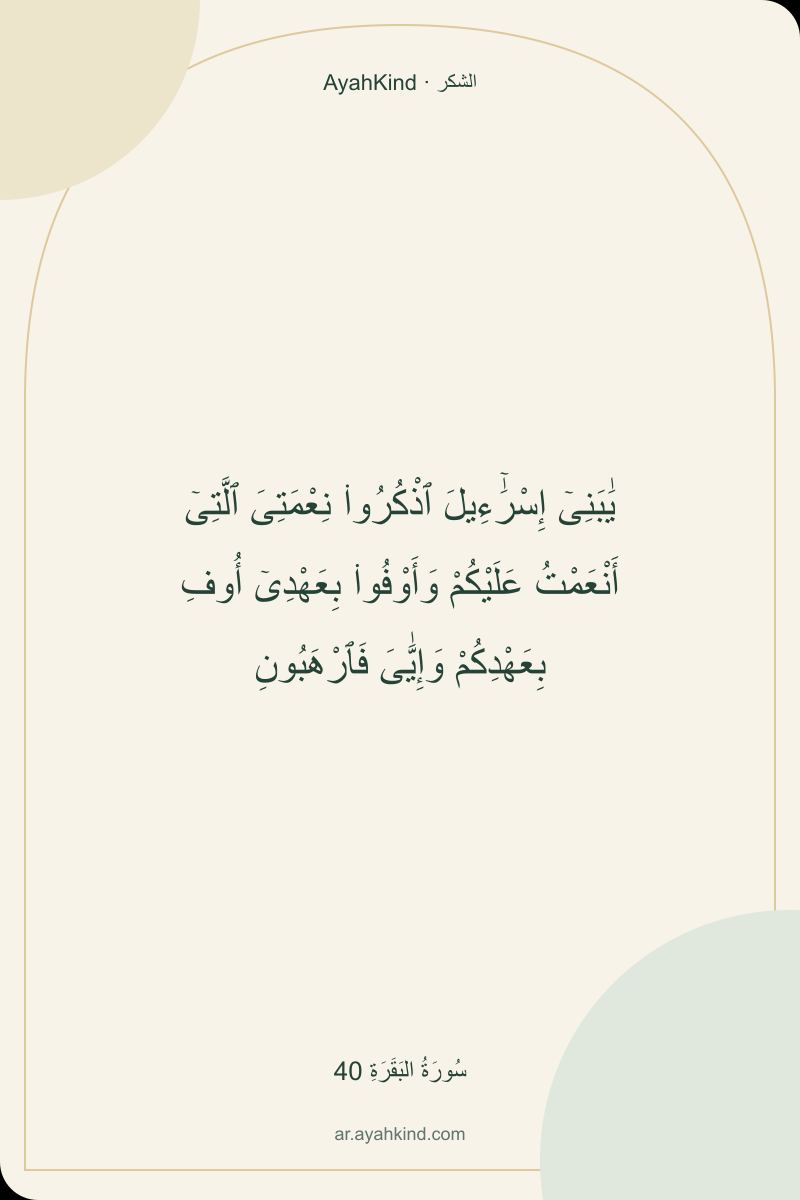 AyahKind · الشكر
يَٰبَنِىٓ إِسْرَٰٓءِيلَ ٱذْكُرُوا۟ نِعْمَتِىَ ٱلَّتِىٓ
أَنْعَمْتُ عَلَيْكُمْ وَأَوْفُوا۟ بِعَهْدِىٓ أُوفِ
بِعَهْدِكُمْ وَإِيَّٰىَ فَٱرْهَبُونِ
سُورَةُ البَقَرَةِ 40
ar.ayahkind.com